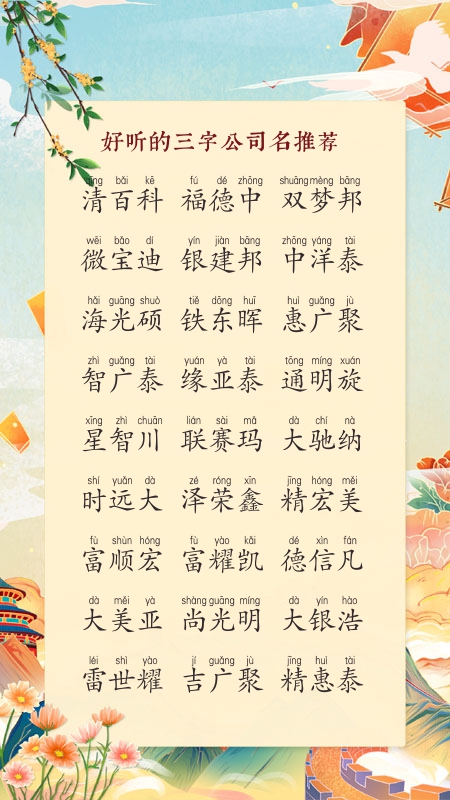 好听的三字公司名推荐
qīng bǎi kē fú dé zhōng shuāng mèng bāng
清百科 福德中 双梦邦
wēi bǎo dí yín jiàn bāng zhōng yáng tài
微宝迪 银建邦 中洋泰
hǎi guāng shuò tiě dōng huī huì guǎng jù
海光硕 铁东晖 惠广聚
zhì guǎng tài yuán yà tài tōng míng xuán
智广泰 缘亚泰 通明旋
xīng zhì chuān lián sài mǎ dà chí nà
星智川 联赛玛 大驰纳
shí yuǎn dà zé róng xīn jīng hóng měi
时远大 泽荣鑫 精宏美
fù shùn hóng fù yào kǎi dé xìn fán
富顺宏 富耀凯 德信凡
dà měi yà shàng guāng míng dà yín hào
大美亚 尚光明 大银浩
léi shì yào jí guǎng jù jīng huì tài
雷世耀 吉广聚 精惠泰